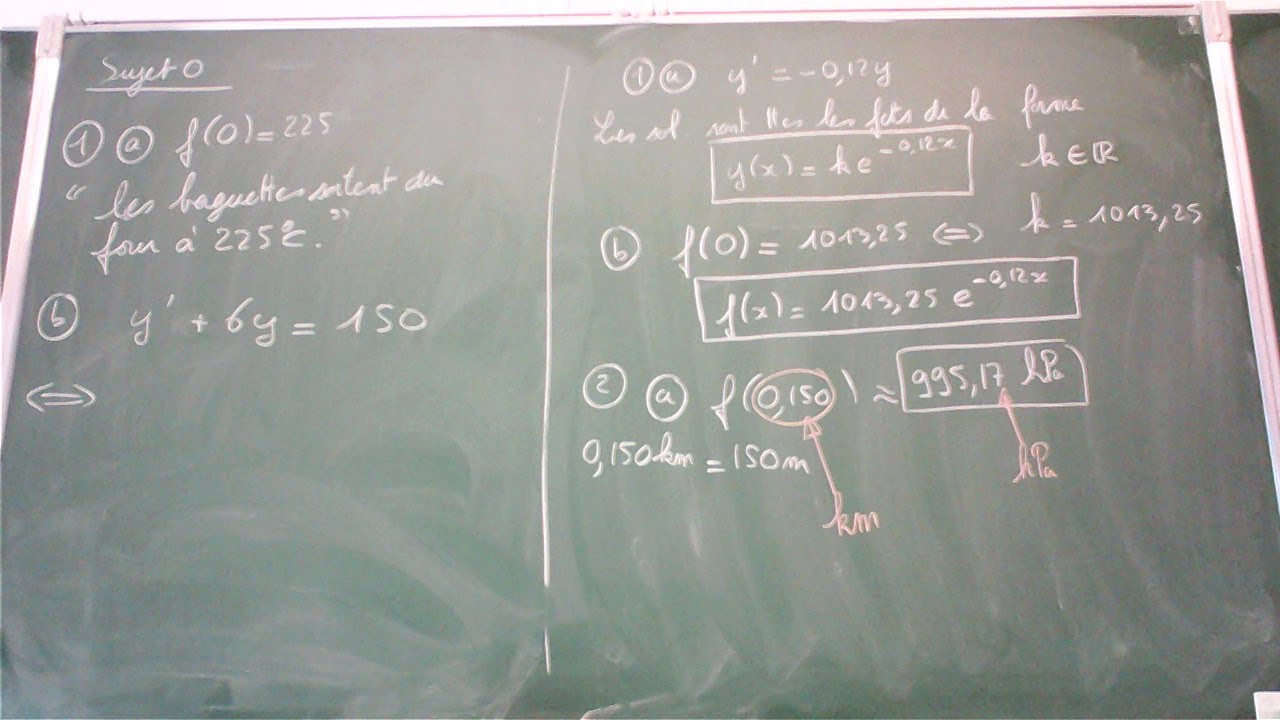 Sujet 0
① ⓐ f(0) = 225
“ les baguettes sortent du
four à 225°C. ”
ⓑ y' + 6y = 150
⟺
① ⓐ y' = -0,12y
Les sol sont ttes les fcts de la forme
y(x) = k e^{-0,12x} k ∈ ℝ
ⓑ f(0) = 1013,25 ⟺ k = 1013,25
f(x) = 1013,25 e^{-0,12x}
② ⓐ f(0,150) ≈ 995,17 hPa
0,150km = 150m
hPa
km